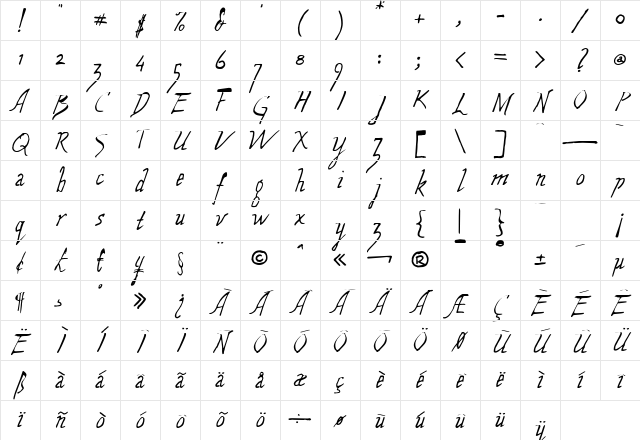 ! " # $ % & ' ( ) * + , - . / 0
1 2 3 4 5 6 7 8 9 : ; < = > ? @
A B C D E F G H I J K L M N O P
Q R S T U V W X Y Z [ \ ] ^ _ `
a b c d e f g h i j k l m n o p
q r s t u v w x y z { | } ~ ¡
¢ £ ¤ ¥ § ¨ © ª « ¬ ® ¯ ± ´ µ
¶ ¸ º » ¿ À Á Â Ã Ä Å Æ Ç È É Ê
Ë Ì Í Î Ï Ñ Ò Ó Ô Õ Ö Ø Ù Ú Û Ü
ß à á â ã ä å æ ç è é ê ë ì í î
ï ñ ò ó ô õ ö ÷ ø ù ú û ü ÿ